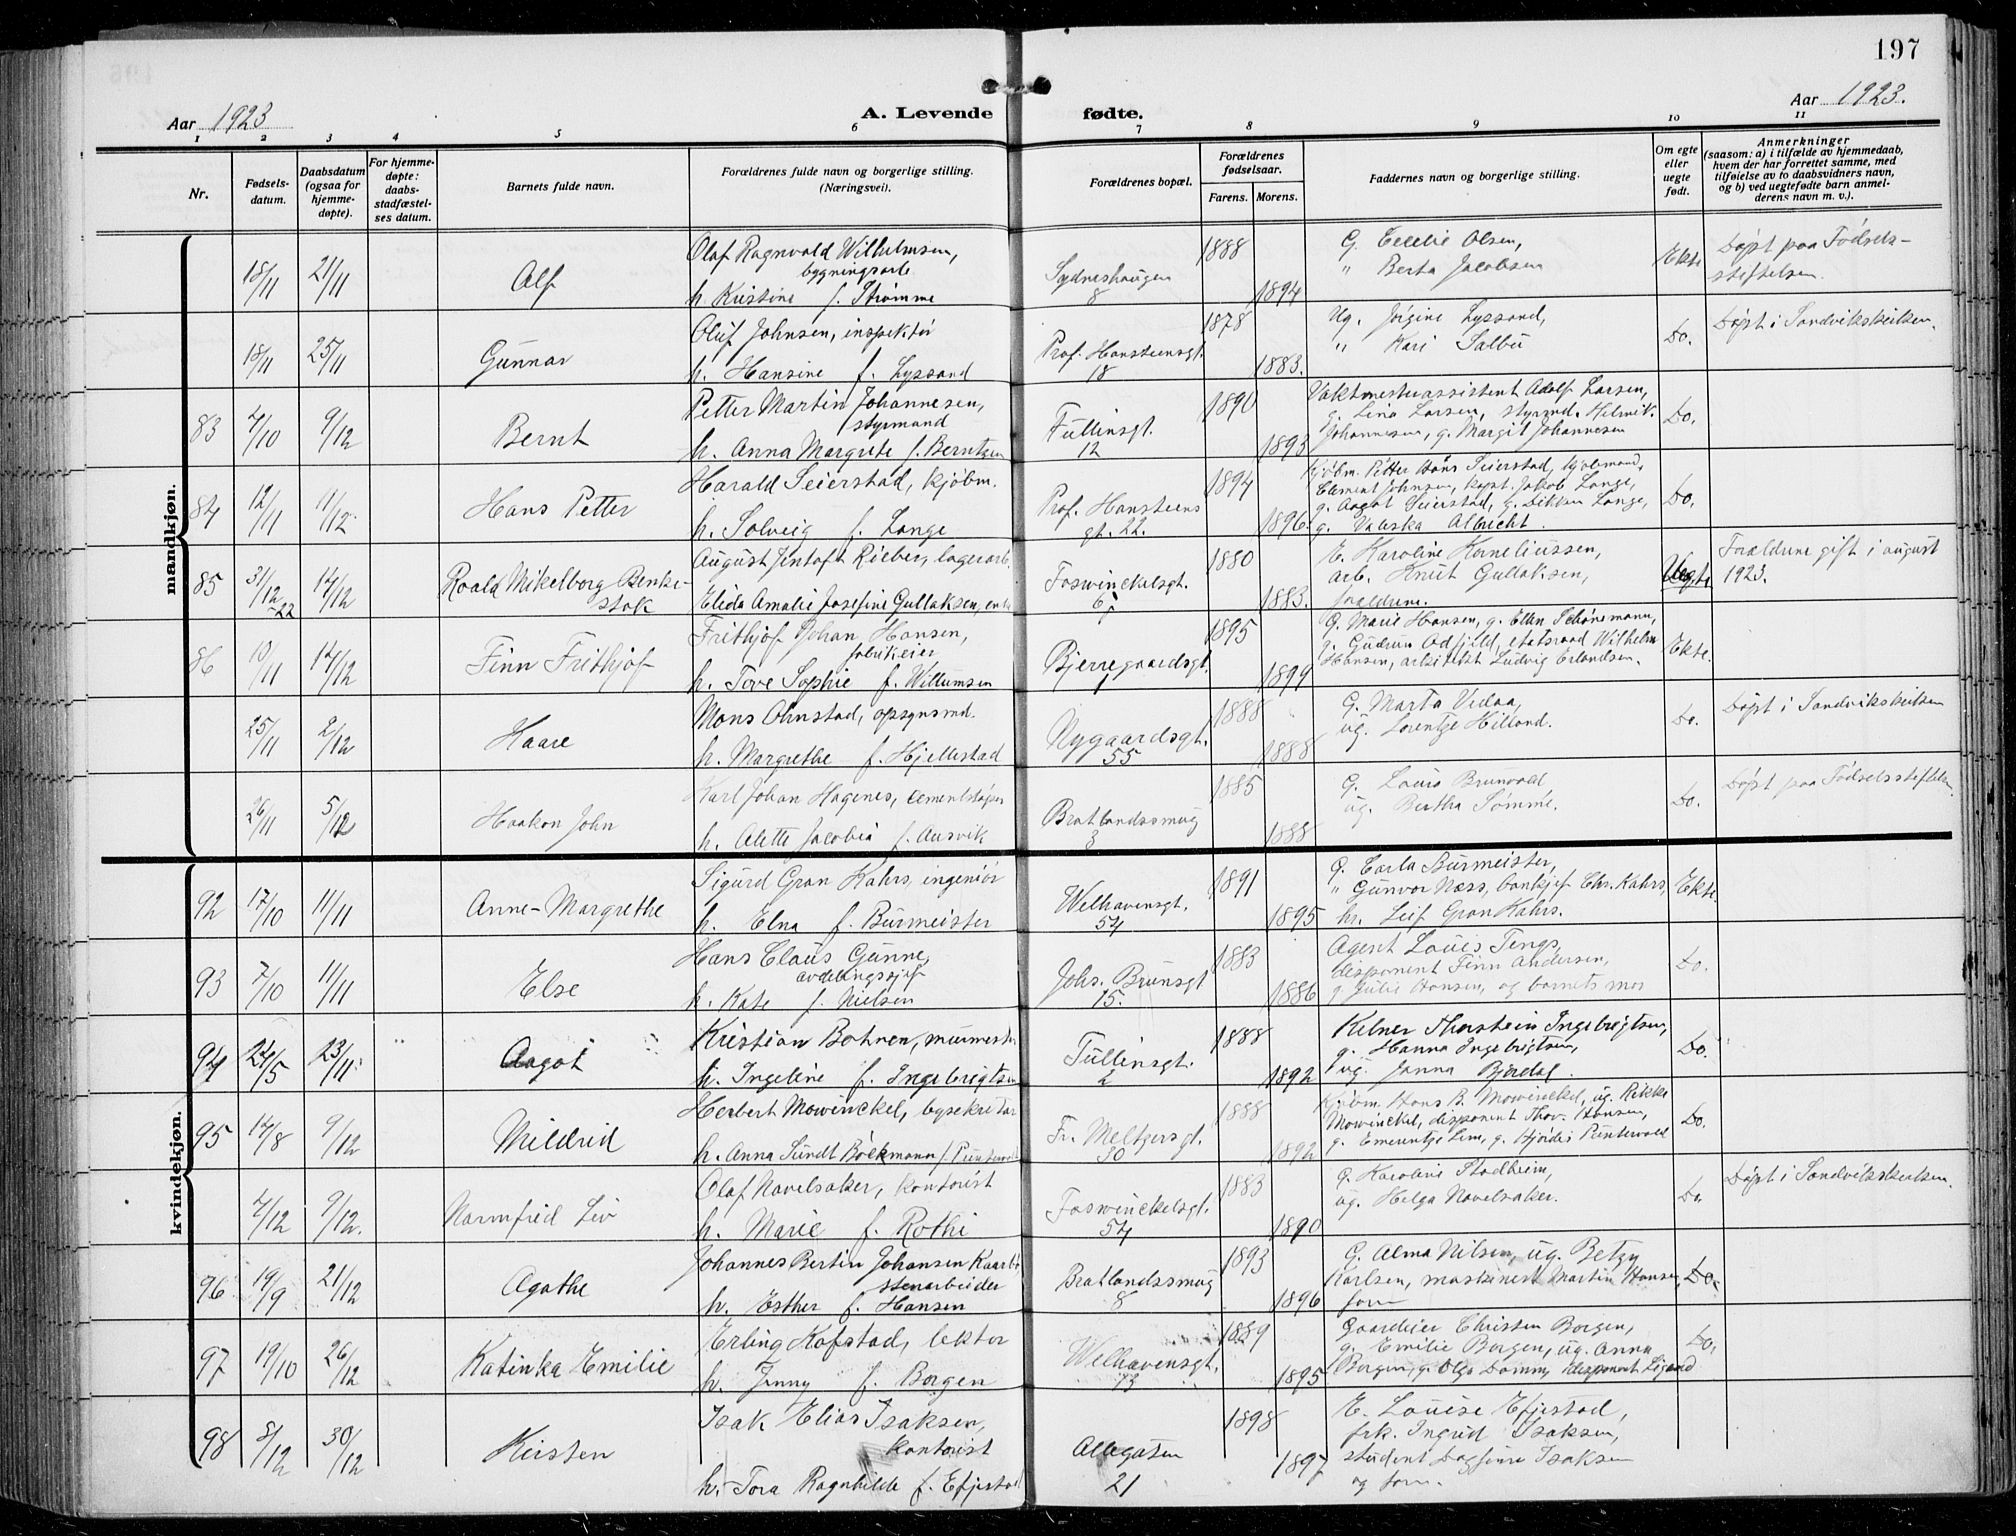 197
Aar 1923
A. Levende fødte.
Aar 1923.
1 2 3 4 5 6 7 8 9 10 11
Nr.
Fødsels-
datum.
Daabsdatum
(ogsaa for
hjemme-
døpte).
For hjemme-
døpte:
daabs-
stadfæstel-
ses datum.
Barnets fulde navn.
Forældrenes fulde navn og borgerlige stilling.
(Næringsvei).
Forældrenes bopæl.
Forældrenes
fødselsaar.
Farens. Morens.
Faddernes navn og borgerlige stilling.
Om egte
eller
uegte
født.
Anmerkninger
(saasom: a) i tilfælde av hjemmedaab,
hvem der har forrettet samme, med
tilføielse av to daabsvidners navn,
og b) ved uegtefødte barn anmel-
derens navn m. v.).
mandkjøn.
18/11 21/11 Alf
Olaf Ragnvald Wilhelmsen,
bygningsarb.
h. Kristine f. Strømme
Sydneshaugen
8
1888
1894
G. Cecelie Olsen,
" Berta Jacobsen
Ekte
Døpt paa Fødsels-
stiftelsen.
18/11 25/11 Gunnar
Oluf Johnsen, inspektør
h. Hansine f. Lyssand
Prof. Hansteensgt.
18
1878
1883.
Ug. Jørgine Lyssand,
" Kari Salbu
Do.
Døpt i Sandvikskirken.
83 7/10 9/12 Bernt
Petter Martin Johannesen,
styrmand
h. Anna Margrete f. Berntzen
Tullinsgt.
12
1890
1893
Vaktmesterassistent Adolf Larsen,
g. Lina Larsen, styrmd. Helmik
Johannesen, g. Margit Johannesen
Do.
84 12/11 11/12. Hans Petter
Harald Seierstad, kjøbm.
h. Solveig f. Lange
Prof. Hansteens
gt. 22.
1894
1896.
Kjøbm. Petter Hans Seierstad, kjøbmand,
Clement Johnsen, kapt. Jakob Lange,
g. Aagot Seierstad, g. Dikken Lange,
g. Valeska Albrecht.
Do.
85 31/12 -22 14/12 Roald Mikelborg Benke-
stok
August Jentoft Rieber, lagerarb.
Elida Amalie Josefine Gullaksen, enke
Foswinckelsgt.
6
1880
1883.
E. Karoline Korneliussen,
arb. Knut Gullaksen,
forældrene.
Uegte
Forældrene gift i august
1923.
86 10/11 14/12 Finn Frithjof
Frithjof Johan Hansen,
fabrikeier
h. Tove Sophie f. Willumsen
Bjerregaardsgt.
1
1895
1899
G. Marie Hansen, g. Ellen Schønemann,
g. Gudrun Odfjeld, statsraad Wilhelm
Hansen, arkitekt Ludvig Erlandsen.
Ekte.
25/11 2/12 Haare
Mons Ohnstad, opsynsmd.
h. Margrethe f. Hjellestad
Nygaardsgt.
55
1888
1888
G. Marta Vidaa,
ug. Lorentze Hilland.
Do.
Døpt i Sandvikskirken
26/11 5/12 Haakon John
Karl Johan Hagenes, cementstøper
h. Alette Jacobia f. Ausvik
Bratlandssmug
3
1885
1888
G. Laura Brunvold
ug. Bertha Sømme.
Do.
Døpt paa Fødselsstiftelsen.
kvindekjøn.
92 17/10 11/11 Anne-Margrethe
Sigurd Gran Kahrs, ingeniør
h. Elna f. Burmeister
Welhavensgt.
54
1891
1895
G. Carla Burmeister,
" Gunvor Næss, bankjef Chr. Kahrs,
hr. Leif Gran Kahrs.
Ekte
93 7/10 11/11 Else
Hans Claus Gunne,
avdelingssjef
h. Kate f. Nielsen
Johs. Brunsgt
15.
1883
1886
Agent Louis Tengs,
disponent Finn Andersen,
g. Julie Hansen, og barnets mor
Do.
94 24/5 23/11 Aagot
Kristian Bohnen, murmester
h. Ingeline f. Ingebrigtsen
Tullinsgt.
2
1888
1892
Kelner Thorstein Ingebrigtsen,
g. Hanna Ingebrigtsen,
ug. Janna Bjordal.
Do.
95 14/8 9/12 Mildrid
Herbert Mowinckel, bysekretær
h. Anna Sundt Böckmann f. Puntervold
Fr. Meltzersgt.
30
1888
1892
Kjøbm. Hans B. Mowinckel, ug. Rikke
Mowinckel, disponent Thor. Hansen,
g. Emerentze Lem, g. Hjørdis Puntervold
Do.
7/12 9/12. Normfrid Liv
Olaf Navelsaker, kontorist
h. Marie f. Rothi
Foswinckelsgt.
54
1883
1890
G. Karoline Stadheim,
ug. Helga Navelsaker.
Do.
Døpt i Sandvikskirken.
96 19/9 21/12 Agathe
Johannes Bertin Johansen Kaarbø
stenarbeider
h. Esther f. Hansen
Bratlandssmug
8
1893
1896
G. Alma Nilsen, ug. Betzy
Karlsen, maskinest Martin Hansen
Do.
97 19/10 26/12 Katinka Emilie
Erling Kafstad, lektor
h. Jenny f. Borgen
Welhavensgt.
13
1889
1895
Gaardeier Christen Borgen,
g. Emilie Borgen, ug. Anna
Borgen, g. Olga Dommy, disponent Ligaard
Do.
98 8/12 30/12 Kirsten
Isak Elias Isaksen,
kontorist
h. Tora Ragnhilde f. Efjestad
Allegaten
21
1898
1897
E. Louise Efjestad,
frk. Ingrid Isaksen,
student Dagfinn Isaksen